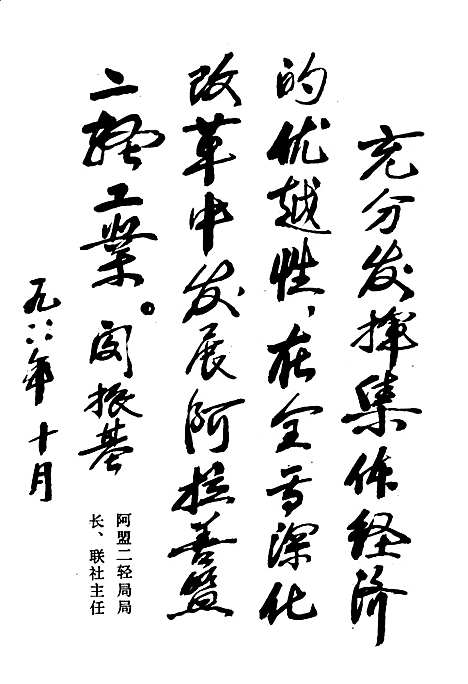 充分发挥集体经济
的优越性，在全面深化
改革中发展阿拉善盟
二轻工業。闵振基
九八八年十月
阿盟二轻局局
长、联社主任